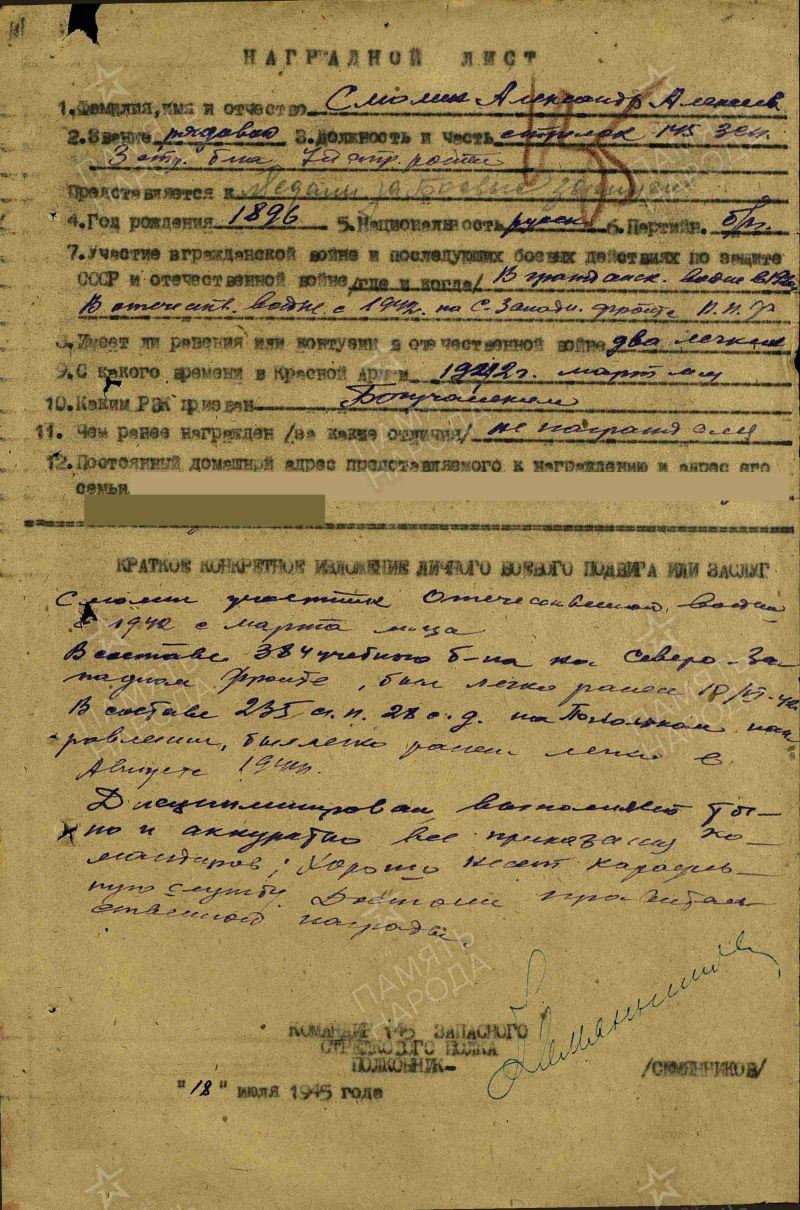 НАГРАДНОЙ ЛИСТ
1. Фамилия, имя и отчество Смолин Александр Алексеев.
2. Звание рядовой 3. Должность и часть стрелок 145 зсп.
3 стр. б-на 7й стр. роты
Представляется к Медали за боевые заслуги
4. Год рождения 1896 5. Национальность русск. 6. Партийн. б/п.
7. Участие в гражданской войне и последующих боевых действиях по защите
СССР и отечественной войне /где и когда/ В гражданск. войне в
В отечеств. войне с 1942. на С. Западн. фронте П.П.Ф
8. Имеет ли ранения или контузии в отечественной войне два легких
9. С какого времени в Красной Армии 1942г. март м-ц
10. Каким РВК призван
11. Чем ранее награжден /за какие отличия/ не награждался
12. Постоянный домашний адрес представляемого к награждению и адрес его
семьи
КРАТКОЕ КОНКРЕТНОЕ ИЗЛОЖЕНИЕ ЛИЧНОГО БОЕВОГО ПОДВИГА ИЛИ ЗАСЛУГ
Смолин участник Отечественной войны
с 1942 с марта м-ца
В составе 384 учебного б-на на Северо-За-
падном Фронте, был легко ранен 18/
В составе 235 с.п. 28 с.д. на нап
равлении, был легко ранен легко в
Августе 1944г.
Дисциплинирован выполняет
и аккуратно все приказания ко-
мандиров; Хорошо несет карауль-
ную службу Достоин правитель-
ственной награды.
КОМАНДИР 145 ЗАПАСНОГО
СТРЕЛКОВОГО ПОЛКА
ПОЛКОВНИК-
/СЕМЯННИКОВ/
"18" июля 1945 года
ПАМЯТЬ
НАРОДА